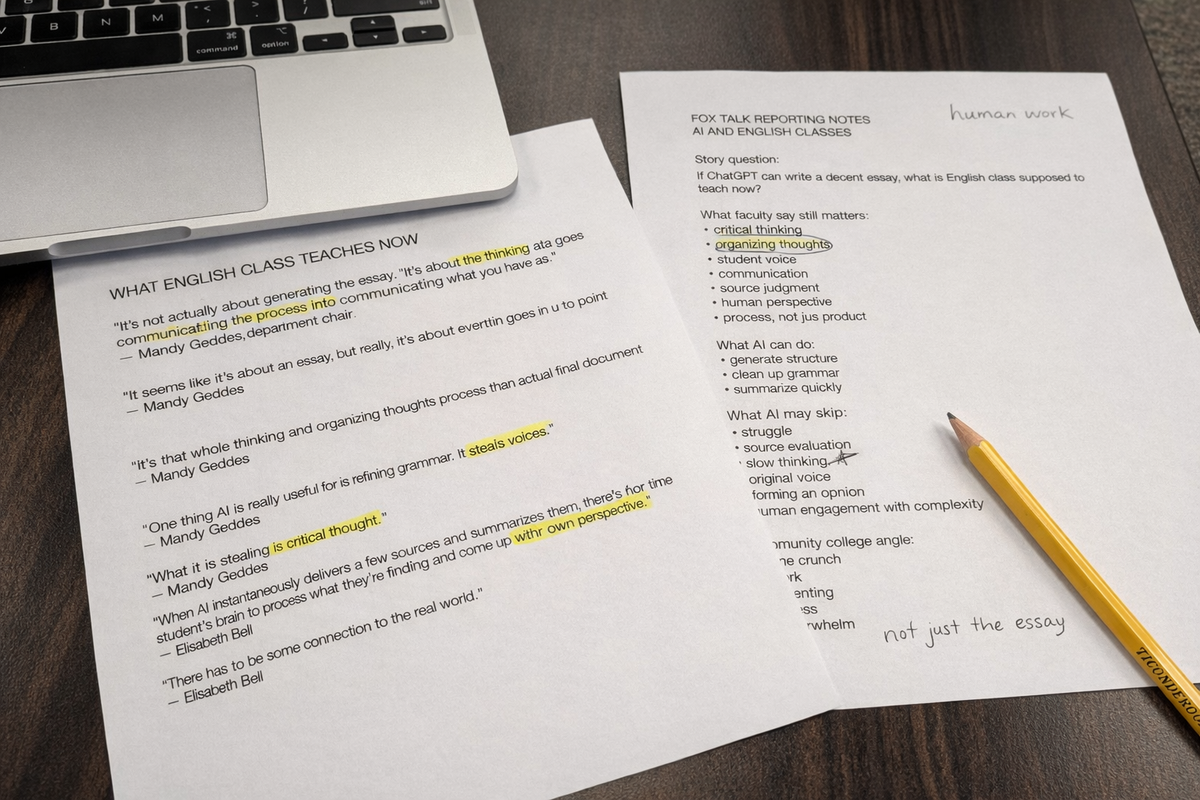 B
N
M
command
option
WHAT ENGLISH CLASS TEACHES NOW
"It's not actually about generating the essay. "It's about the thinking ata goes
communicatting the process into communicating what you have as."
— Mandy Geddes, department chair.
"It seems like it's about an essay, but really, it's about everttin goes in u to point
— Mandy Geddes
"It's that whole thinking and organizing thoughts process than actual final document
— Mandy Geddes
"One thing AI is really useful for is refining grammar. It steals voices."
— Mandy Geddes
"What it is stealing is critical thought."
— Mandy Geddes
"When AI instantaneously delivers a few sources and summarizes them, there's nor time
student's brain to process what they're finding and come up withr own perspective."
— Elisabeth Bell
"There has to be some connection to the real world."
— Elisabeth Bell
human work
FOX TALK REPORTING NOTES
AI AND ENGLISH CLASSES
Story question:
If ChatGPT can write a decent essay, what is English class supposed to
teach now?
What faculty say still matters:
• critical thinking
• organizing thoughts
• student voice
• communication
• source judgment
• human perspective
• process, not jus product
What AI can do:
• generate structure
• clean up grammar
• summarize quickly
What AI may skip:
• struggle
• source evaluation
• slow thinking.
original voice
forming an opnion
uman engagement with complexity
munity college angle:
me crunch
rk
enting
ss
rwhelm
not just the essay
TICONDEROG